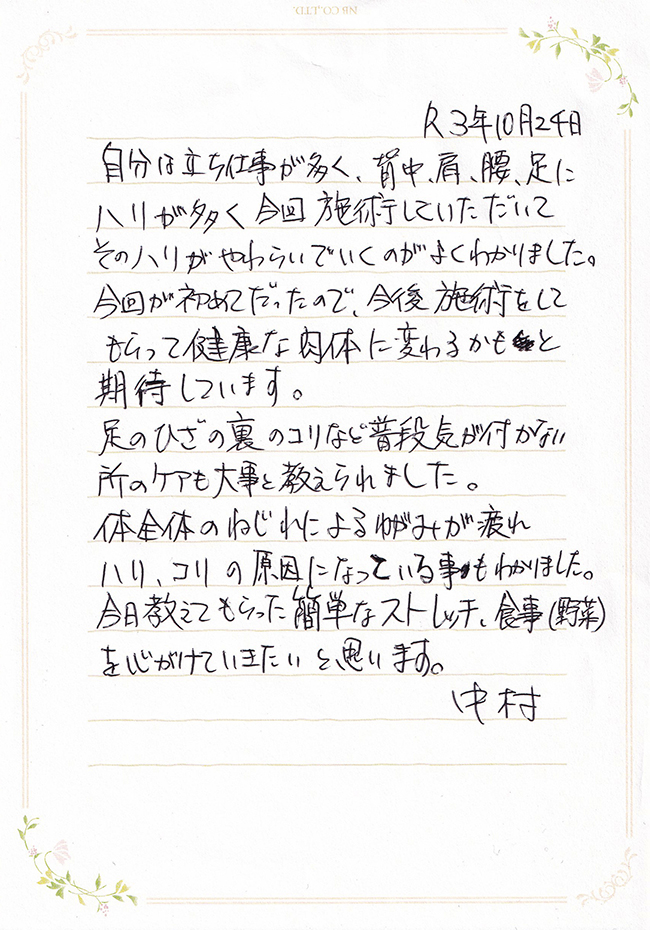 NB CO.,LTD.
R3年10月24日
自分は立ち仕事が多く、背中、肩、腰、足に
ハリが多く今回施術していただいて
そのハリがやわらいでいくのがよくわかりました。
今回が初めてだったので、今後施術をして
もらって健康な肉体に変わるかもと
期待しています。
足のひざの裏のコリなど普段気が付かない
所のケアも大事と教えられました。
体全体のねじれによるゆがみが疲れ
ハリ、コリの原因になっている事もわかりました。
今日教えてもらった簡単なストレッチ、食事(野菜)
を心がけていきたいと思います。
中村